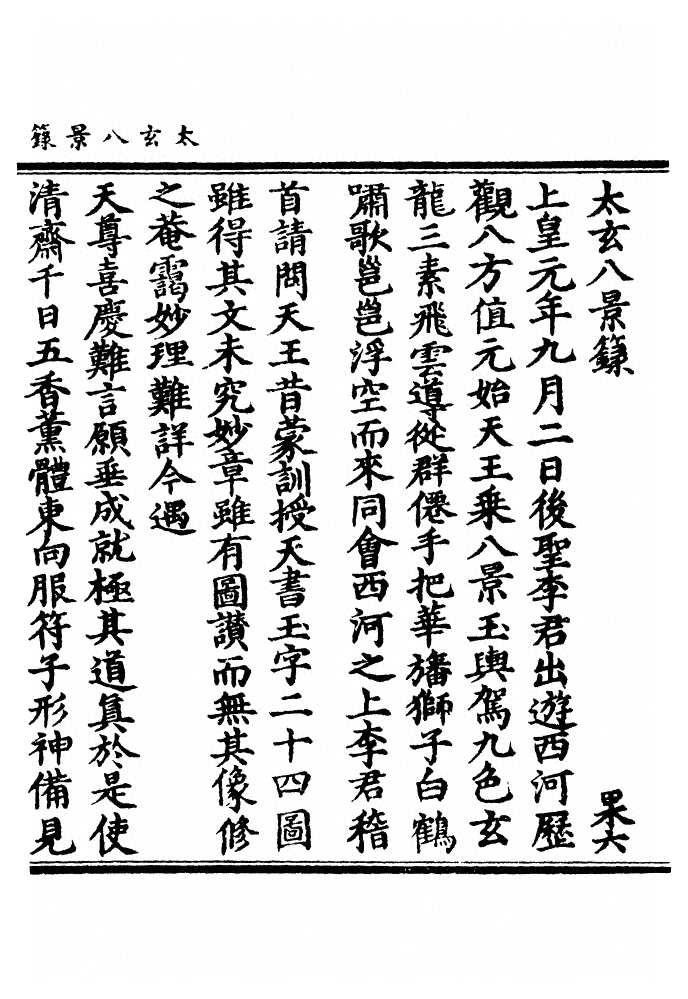 太玄八景籙
太玄八景籙　果六
上皇元年九月二日後聖李君出遊西河歷
觀八方值元始天王乘八景玉輿駕九色玄
龍三素飛雲導從群僊手把華旛獅子白鶴
嘯歌邕邕浮空而來同會西河之上李君稽
首請問天王昔蒙訓授天書玉字二十四圖
雖得其文未究妙章雖有圖讚而無其像修
之菴靄妙理難詳今遇
天尊喜慶難言願垂成就極其道真於是使
清齋千日五香薰體東向服符子形神備見